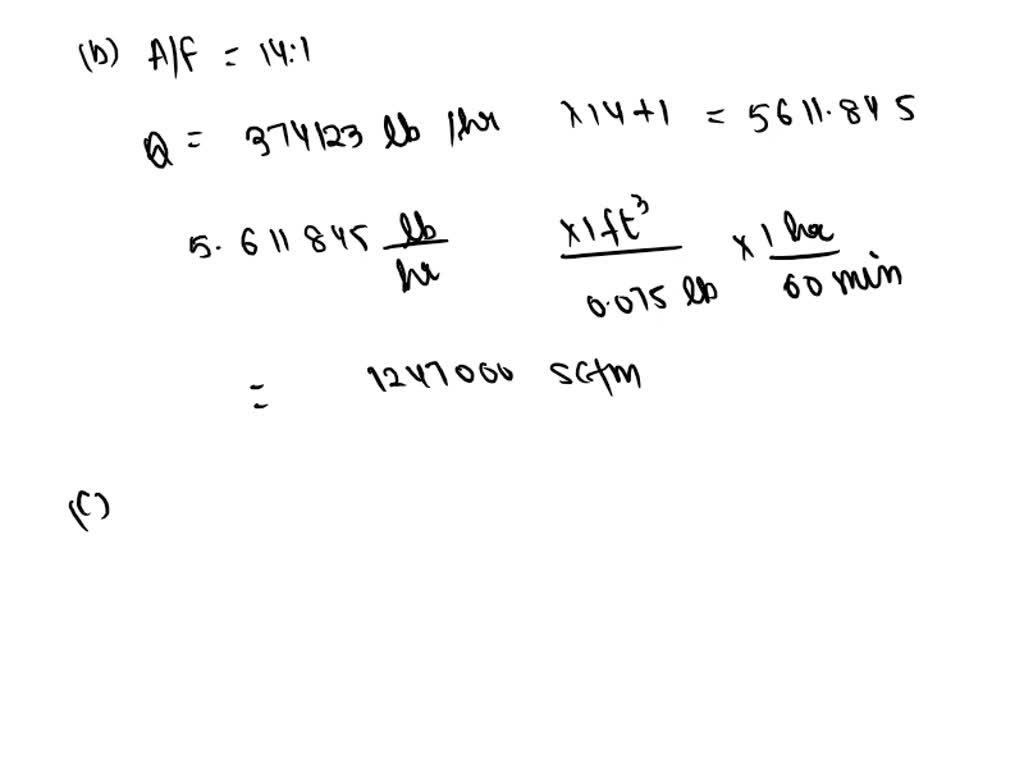 (b) A/F = 14:1
Q = 374123 lb /hr ×14+1 = 5611.845
5.611845 lb/hr ×1ft³/0.075 lb × 1 hr/60 min
= 1247000 scfm
(c)